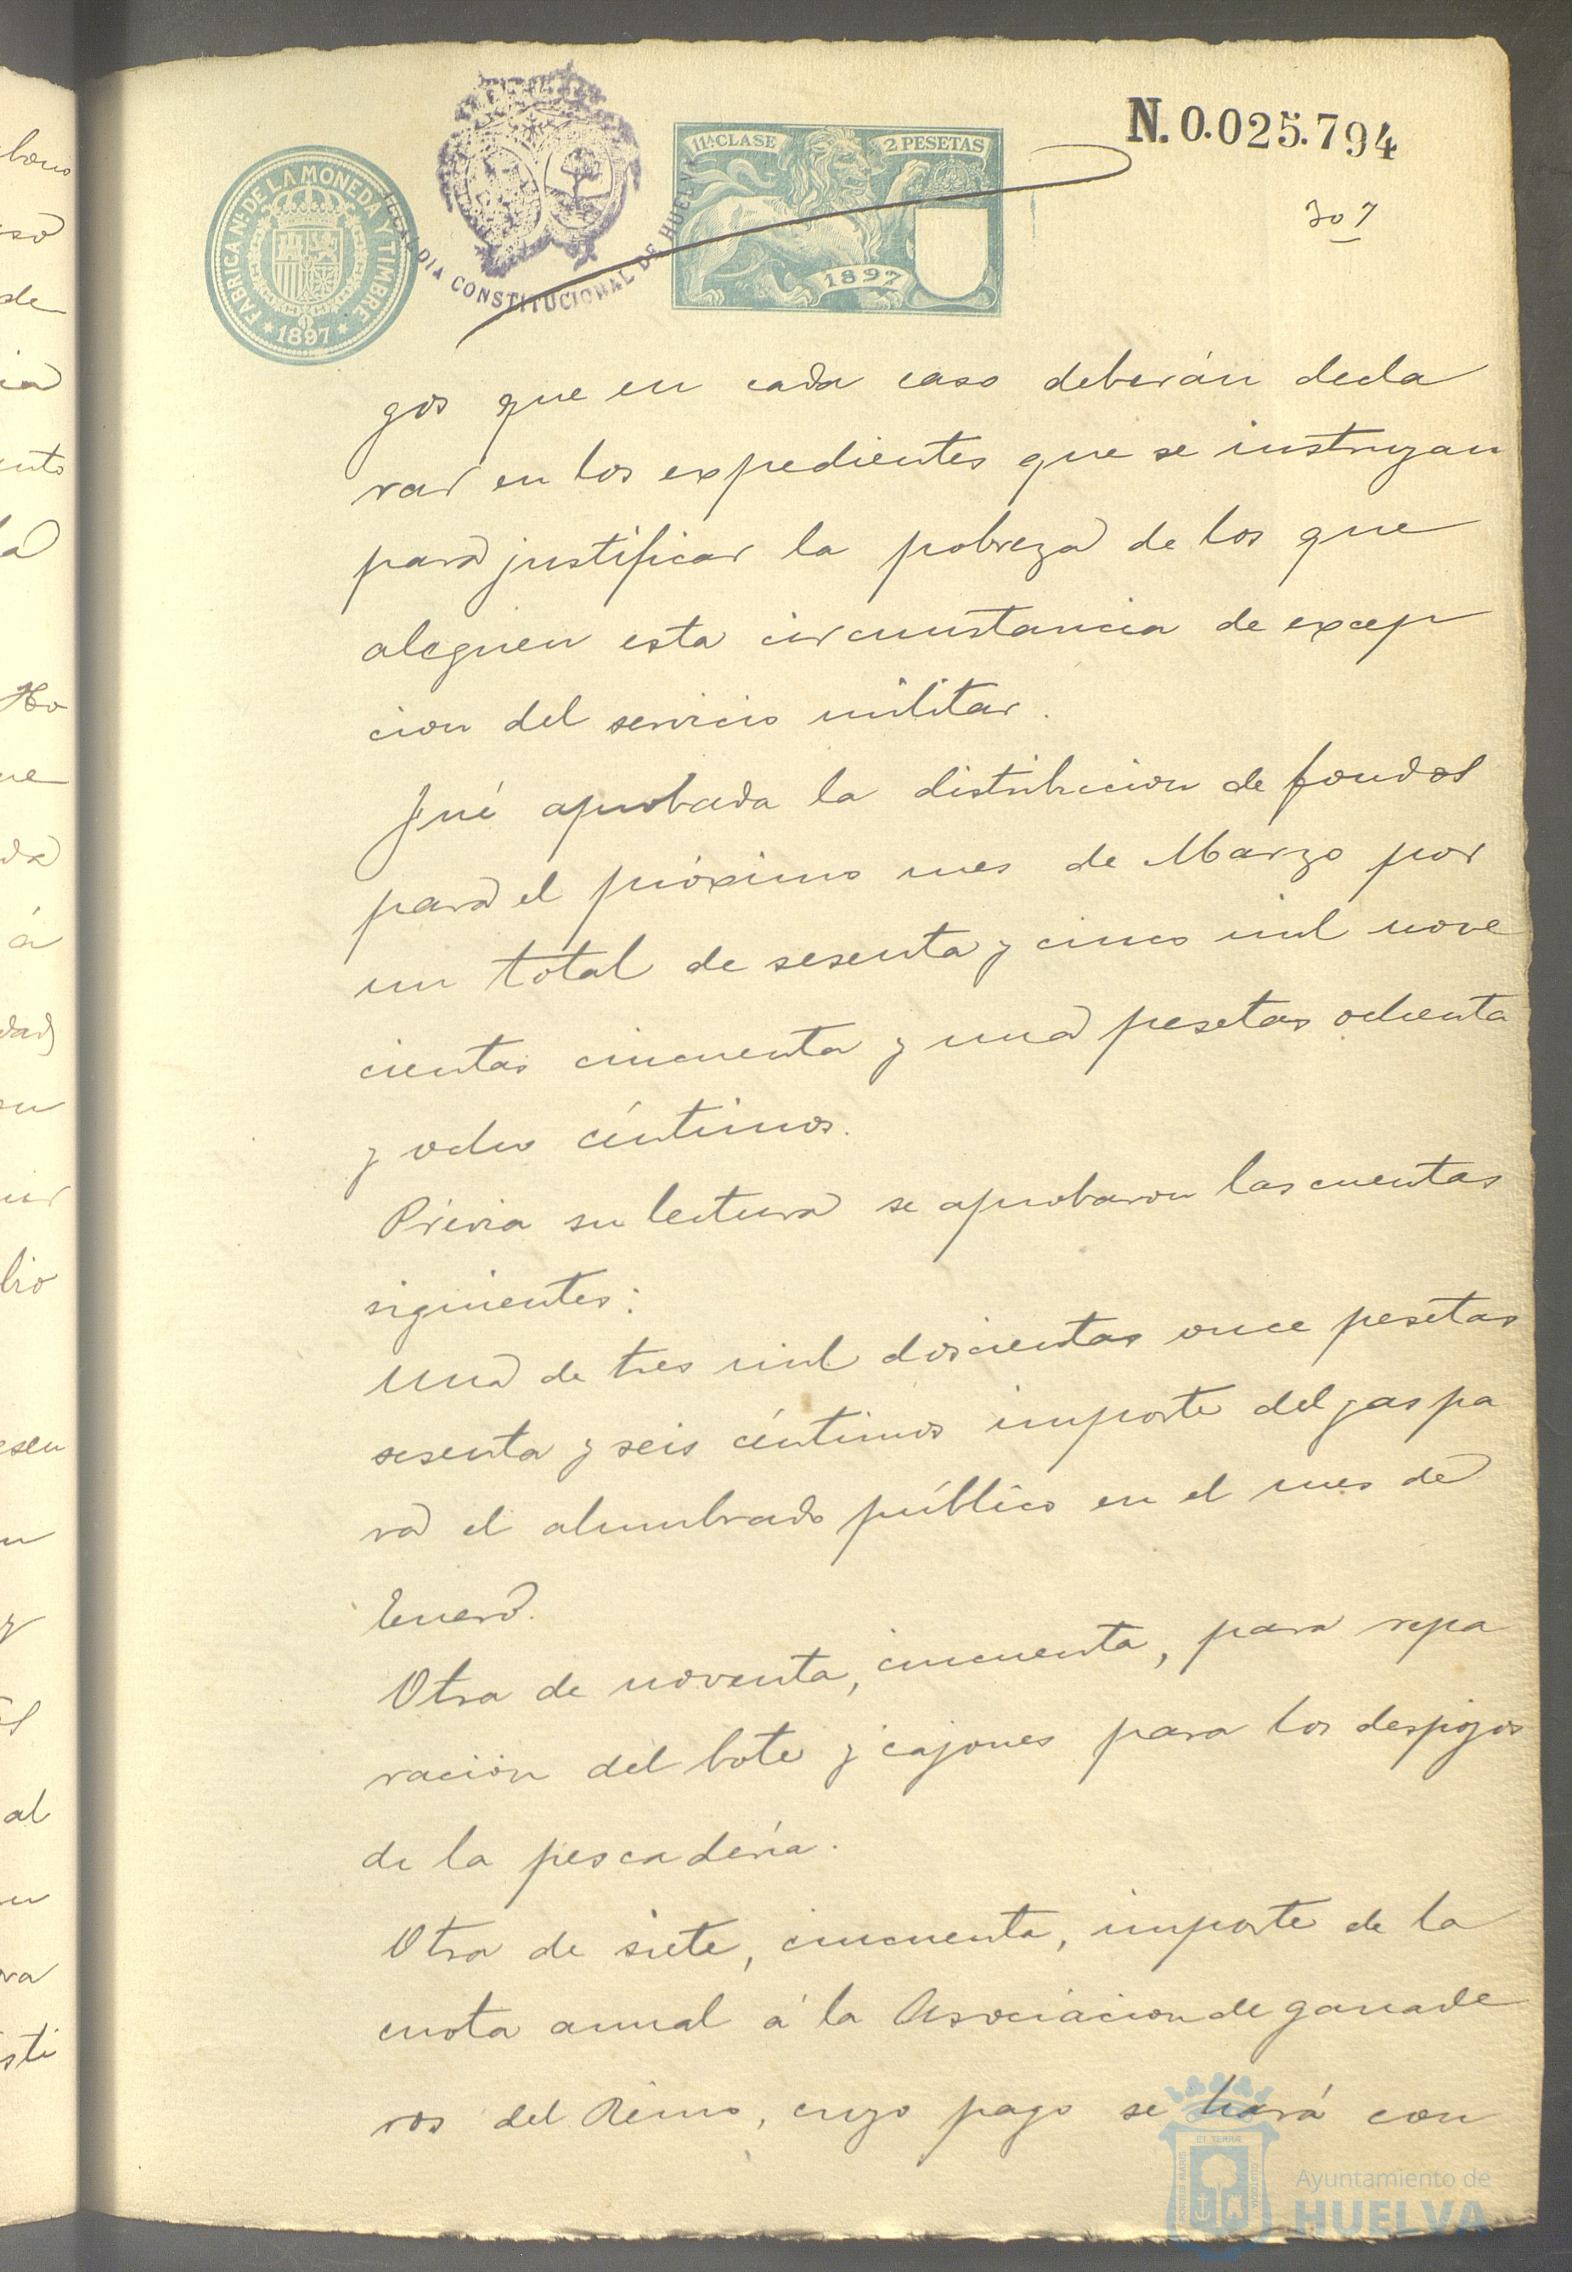 N. 0.025.794
11ª CLASE
2 PESETAS
1897
FABRICA Nl. DE LA MONEDA Y TIMBRE
* 1897 *
ALCALDIA CONSTITUCIONAL DE HUELVA
307
gos que en cada caso deberán decla
rar en los expedientes que se instruyan
para justificar la pobreza de los que
aleguen esta circunstancia de excep
cion del servicio militar.
Fué aprobada la distribucion de fondos
para el próximo mes de Marzo por
un total de sesenta y cinco mil nove
cientas cincuenta y una pesetas ochenta
y ocho céntimos.
Prévia su lectura se aprobaron las cuentas
siguientes:
Una de tres mil doscientas once pesetas
sesenta y seis céntimos importe del gas pa
ra el alumbrado público en el mes de
Enero.
Otra de noventa, cincuenta, para repa
ración del bote y cajones para los despojos
de la pescadería.
Otra de siete, cincuenta, importe de la
cuota anual á la Asociacion de ganade
ros del Reino, cuyo pago se hará con
Ayuntamiento de
HUELVA
bono
so
de
ia
ento
la
ne
da
á
dad
su
lio
esen
n
y
al
ra
sti